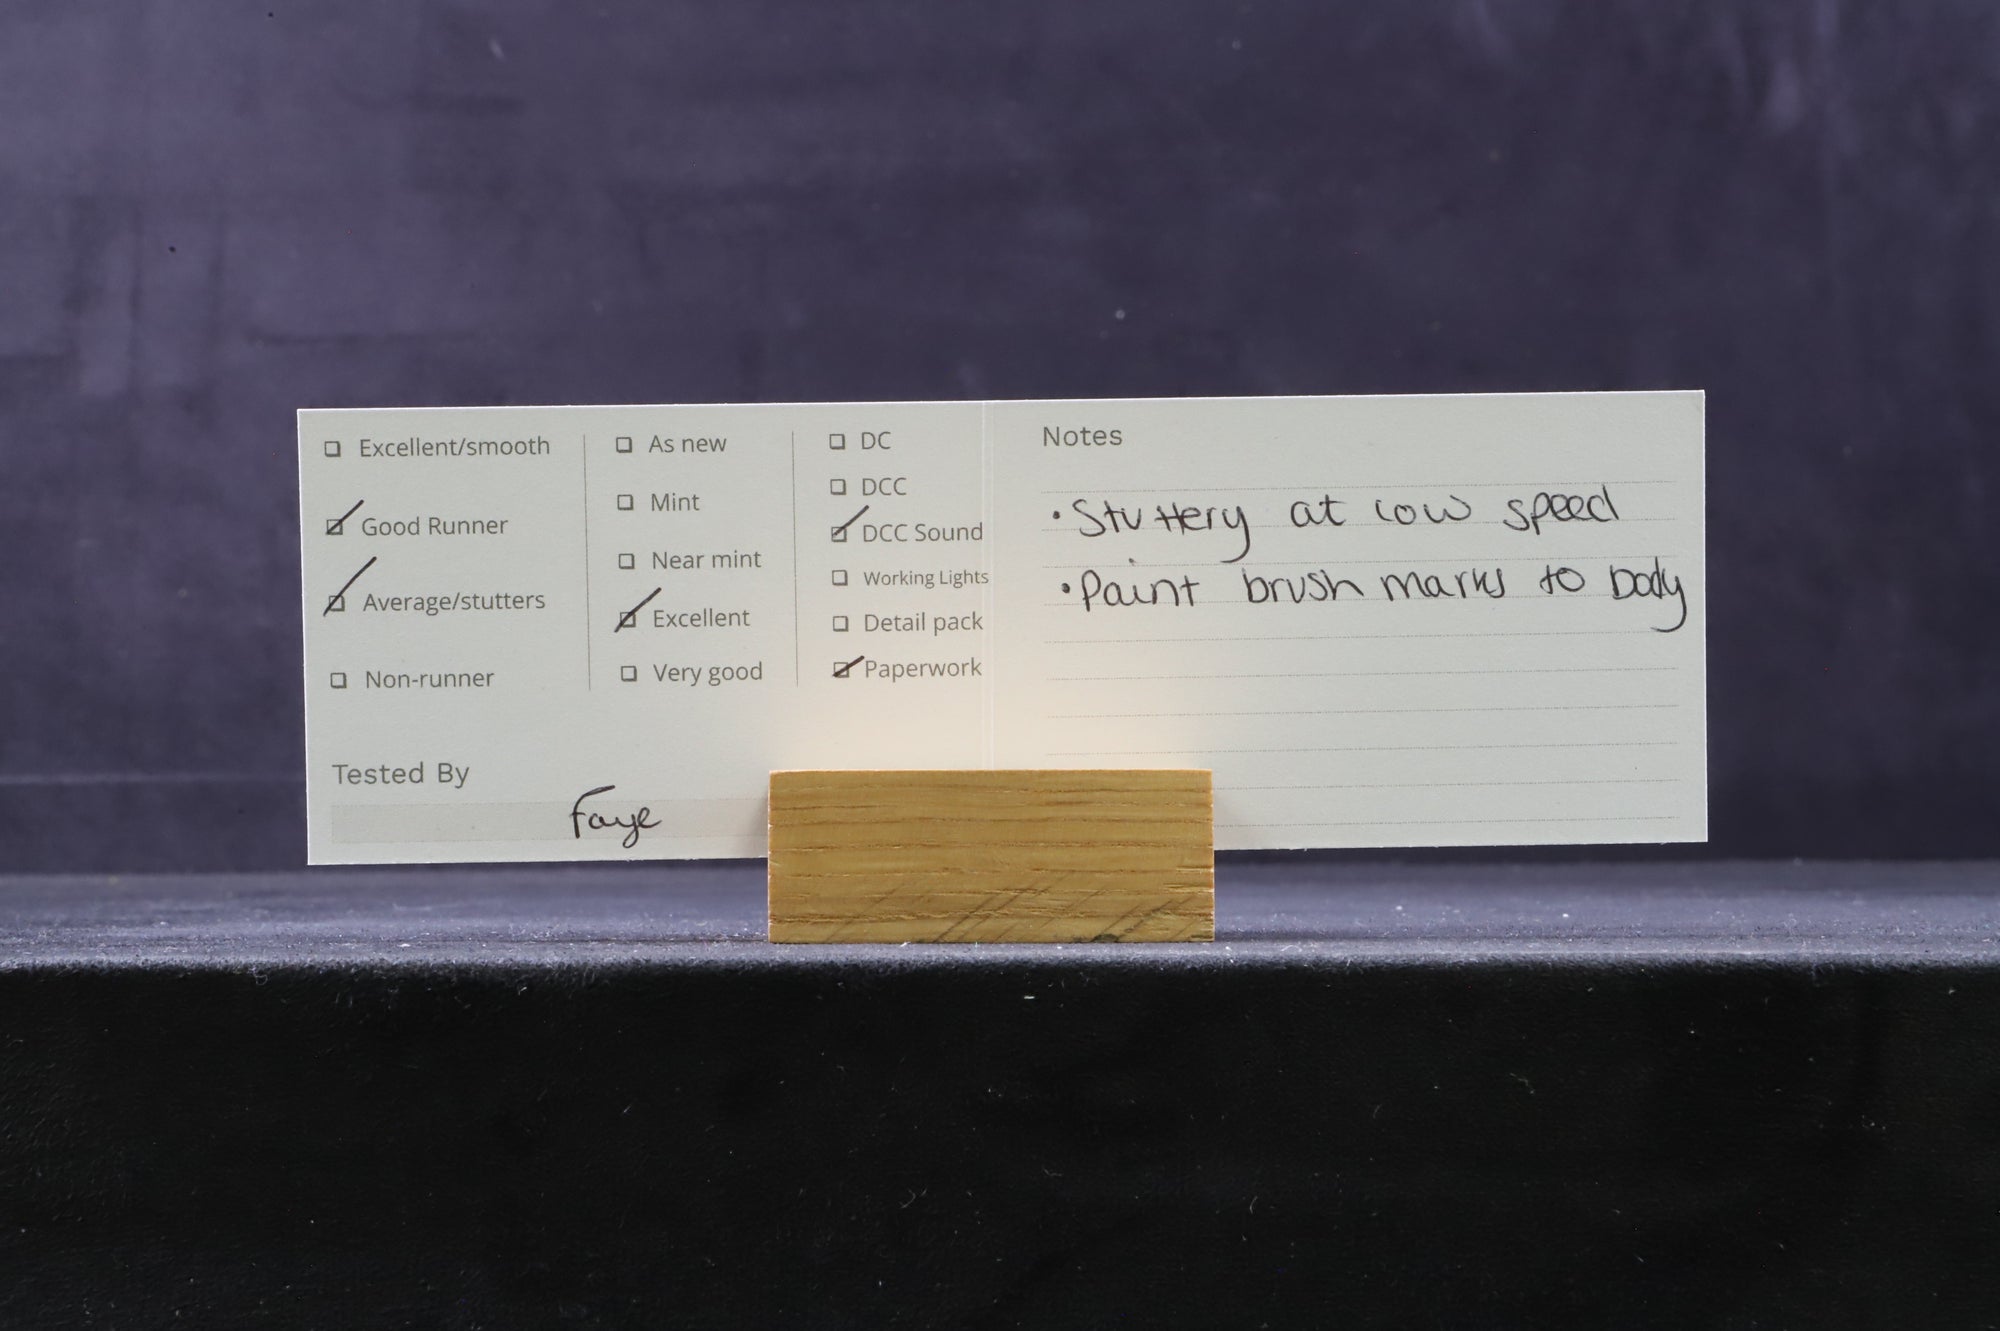 Excellent/smooth
Good Runner
Average/stutters
Non-runner
As new
Mint
Near mint
Excellent
Very good
DC
DCC
DCC Sound
Working Lights
Detail pack
Paperwork
Tested By
Faye
Notes
• Stuttery at low speed
• Paint brush marks to body